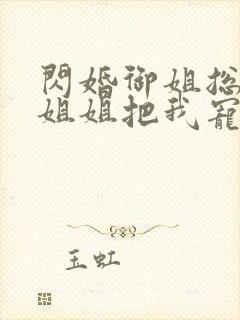 閃婚御姐总
姐姐把我寵
玉虹